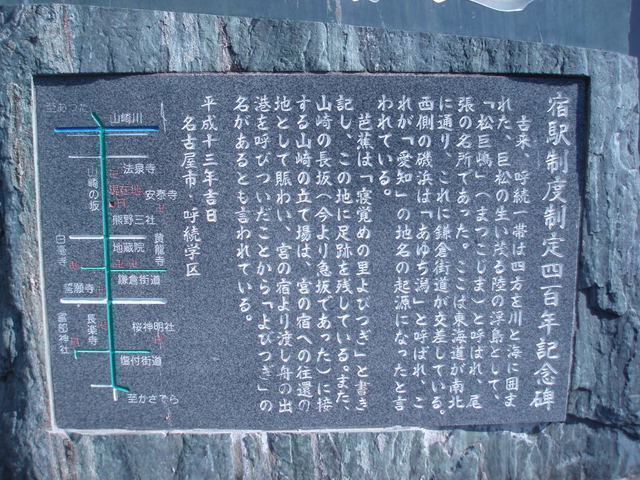 宿駅制度制定四百年記念碑
古来、呼続一帯は四方を川と海に囲ま
れた、巨松の生い茂る陸の浮島として、
「松巨嶋」(まつこじま)と呼ばれ、尾
張の名所であった。ここは東海道が南北
に通り、これに鎌倉街道が交差している。
西側の磯浜は「あゆち潟」と呼ばれ、こ
れが「愛知」の地名の起源になったと言
われている。
芭蕉は「寝覚めの里よびつぎ」と書き
記し、この地に足跡を残している。また、
山崎の長坂(今より急坂であった)に接
する山崎の立て場は、宮の宿への往還の
地として賑わい、宮の宿より渡し舟の出
港を呼びついだことから「よびつぎ」の
名があるとも言われている。
平成十三年吉日
名古屋市・呼続学区
至あつた
山崎川
法泉寺
山崎の坂
現在地
安泰寺
熊野三社
白毫寺
地蔵院
黄龍寺
鎌倉街道
誓願寺
長楽寺
桜神明社
富部神社
塩付街道
至かさでら